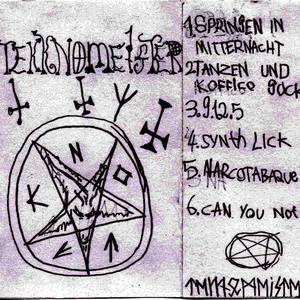 TEKKNOMEISTER
N
K
O
1. SPRINGEN IN
MITTERNACHT
2. TANZEN UND
3. 9.12.5
4. SYNTH LICK
5. NARCOTABAQUE
6. CAN YOU NOT